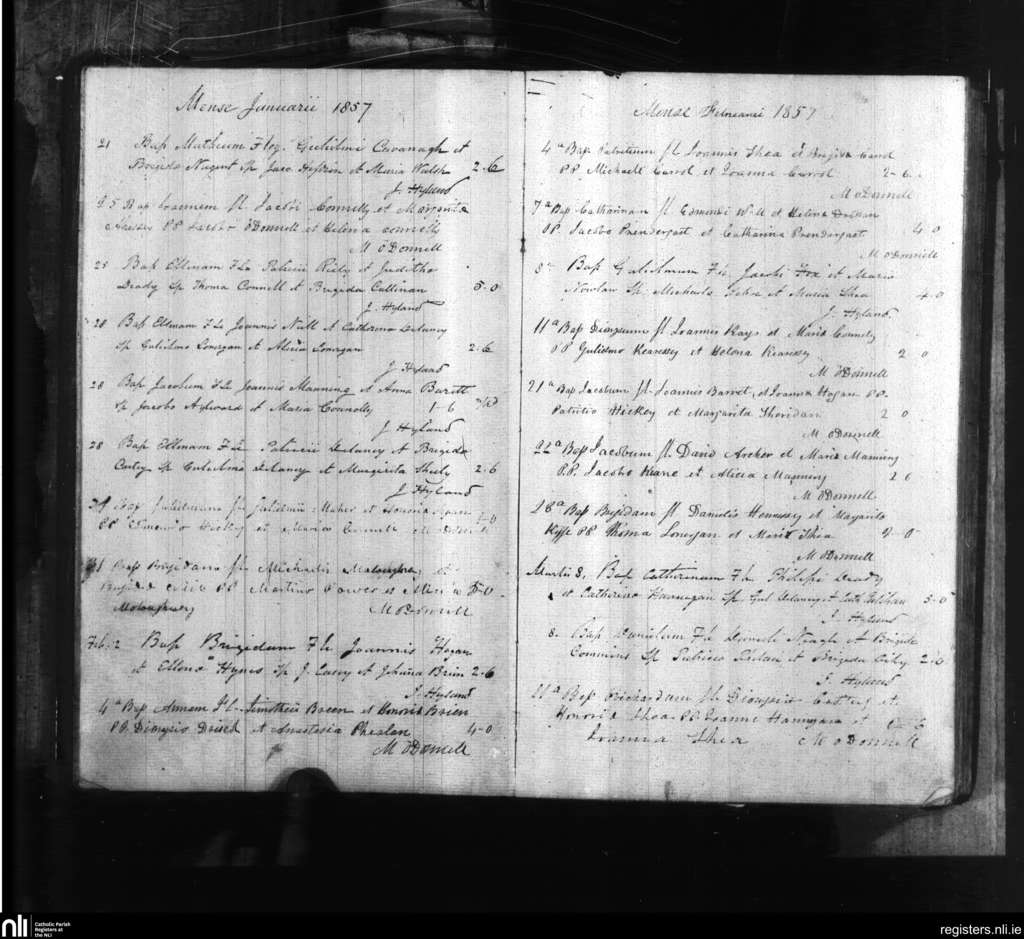 Mense Januarii 1857
21 Bap Matheum F leg. Gulielmi Cavanagh et
Brigida Nugent Sp Jaco et Maria Walsh 2-6
J. Hyland
25 Bap Joannem fl Jacobi Connelly et Margarita
PP Jacobo ODonnell et Helena Connelly
M O'Donnell
25 Bap Ellenam F Le Patricii Riely et Juditha
Deady Sp Thoma Connell et Brigida Cullinan 5-0
J. Hyland
28 Bap Ellenam F Le Joannis Niall et Catherina Delaney
Sp Gulielmo Lonergan et Alicia Lonergan 2.6
J Hyland
28 Bap Jacobum F Le Joannis Manning et Anna Barett
Sp Jacobo Aylward et Maria Connolly 1-6
J Hyland
28 Bap Ellenam F Le Patricii Delaney et Brigida
Carley Sp Gulielmo Delaney et Margarita Sheely 2-6
J Hyland
29 Bap Gulielmum fl Gulielmi Maher et Honoria
PP Hickey et Maria
31 Bap Brigidam fl Michaelis Moloughney et
Brigida PP Martino Power et Maria 5-0
Moloughney M O'Donnell
Feb. 2 Bap Brigidam F Le Joannis Hogan
et Ellena Hynes Sp J. Casey et Johanna Brien 2-6
J. Hyland
4a Bap Annam F L Timotheii Breen et Honoria Brien
PP Dionysio et Anastasia Phelan 4-0
M O'Donnell
Mense Februarii 1857
4a Bap Patritium fl Joannis Shea et Brigida Carrol
PP Michaele Carrol et Joanna Carrol 2-6
M O'Donnell
7a Bap Catharinam fl Edmundi Wall et Helena
PP Jacobo Prendergast et Catharina Prendergast 4-0
M O'Donnell
8a Bap Gulielmum F L Jacobi Fox et Maria
Nowlan Sp. Michaele et Maria Shea 4-0
J. Hyland
11a Bap Dionysium fl Joannis Hays et Maria Connely
PP Gulielmo Kearesey et Helena Kearesey 2 0
M O'Donnell
21a Bap Jacobum fl Joannis Barret, et Joanna Hogan PP.
Patritio Hickey et Margarita Sheridan 2 0
M O'Donnell
22a Bap Jacobum fl. David Archer et Maria Manning
P.P. Jacobo Keane et Alicia Manning 2 6
M O'Donnell
28a Bap Brigidam fl Danielis Hennessy et Margarita
Kiffe PP Thoma Lonergan et Maria Shea 2-0
M O'Donnell
Martii 8. Bap Catherinam F L Philipi Deady
et Catherina Hannegan Sp Gul Delaney et 5-0
J. Hyland
8. Bap Danielum F L Danieli Neagle et Brigida
Commins Sp Patricio et Brigida 2-6
J. Hyland
11a Bap Richardum fl Dionysio et
Honoria Shea PP Joanne Hannigan et
Joanna Shea M O'Donnell
nli
Catholic Parish
Registers at
the NLI
registers.nli.ie